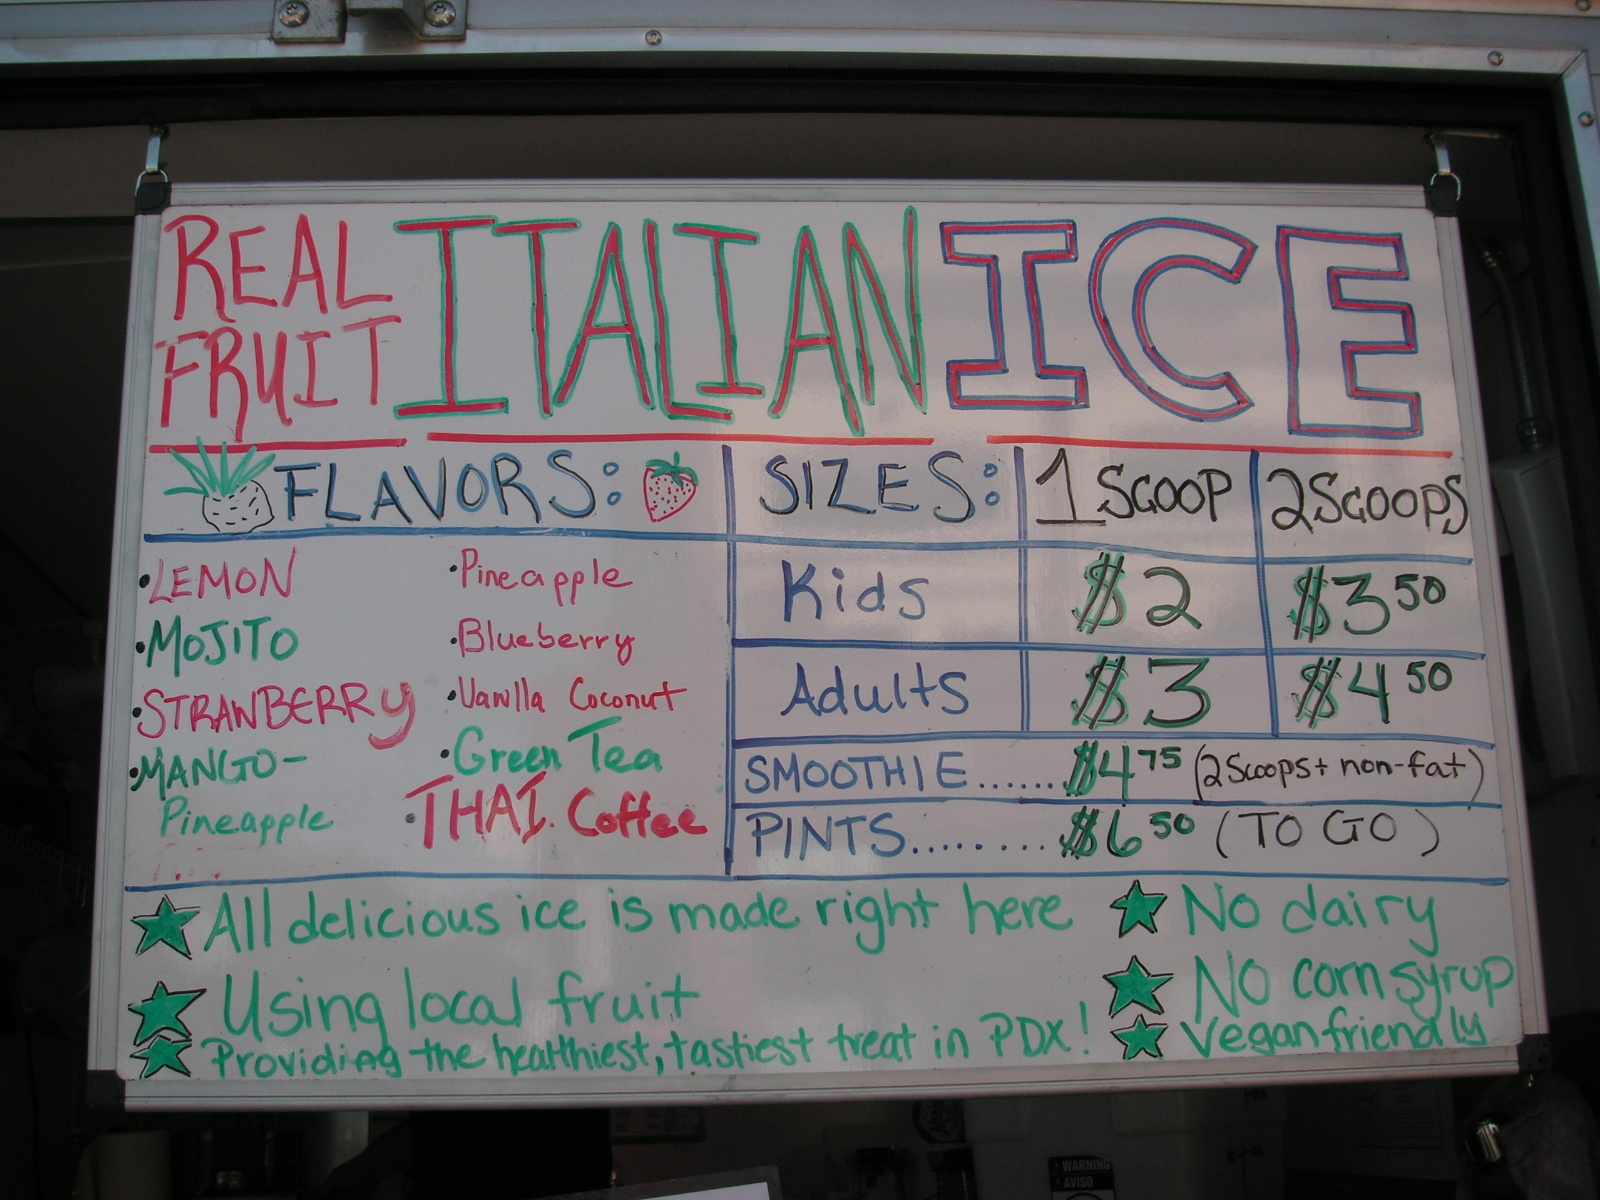 REAL
FRUIT
ITALIAN ICE
FLAVORS:
• LEMON
• MOJITO
• STRAWBERRY
• MANGO-
Pineapple
• Pineapple
• Blueberry
• Vanilla Coconut
• Green Tea
• THAI Coffee
SIZES: 1 SCOOP 2 SCOOPS
Kids $2 $3 50
Adults $3 $4 50
SMOOTHIE....... $4 75 (2 Scoops + non-fat)
PINTS......... $6 50 (TO GO)
★ All delicious ice is made right here
★ Using local fruit
★ Providing the healthiest, tastiest treat in PDX!
★ No dairy
★ No corn syrup
★ Vegan friendly
WARNING
AVISO